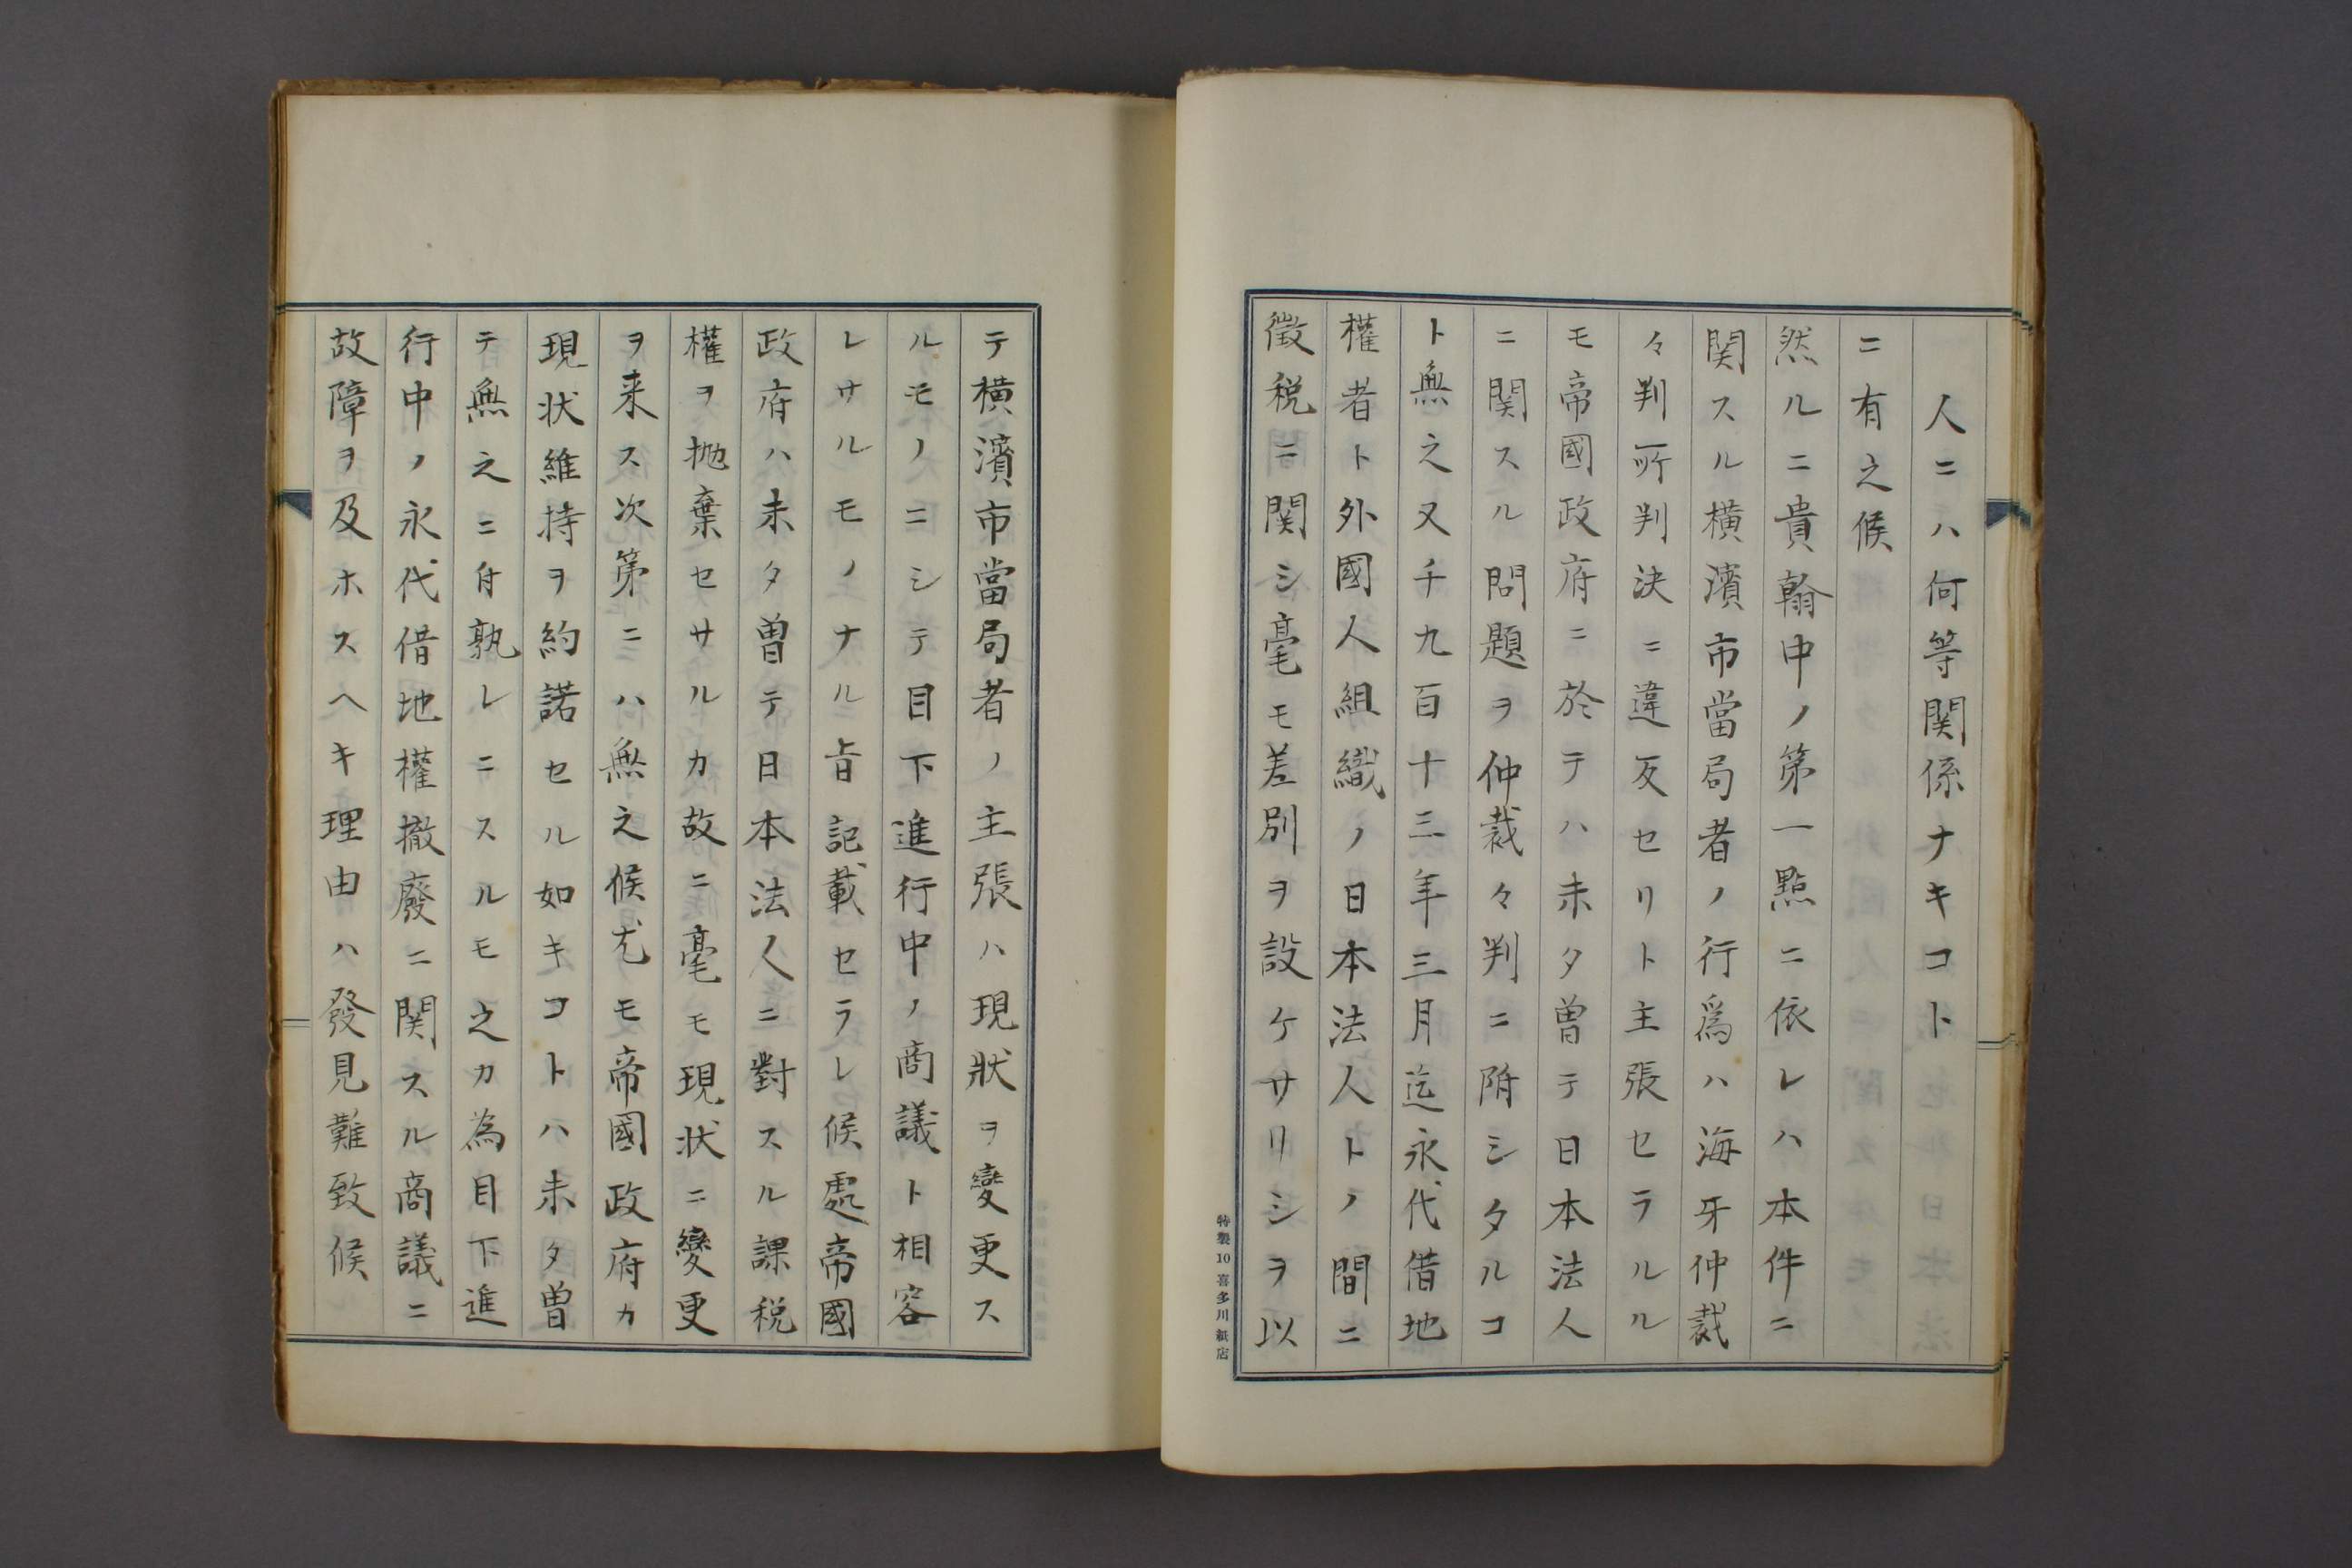 人ニハ何等関係ナキコト
ニ有之候
然ルニ貴翰中ノ第一點ニ依レハ本件ニ
関スル横濱市當局者ノ行爲ハ海牙仲裁
々判所判決ニ違反セリト主張セラルル
モ帝國政府ニ於テハ未タ曽テ日本法人
ニ関スル問題ヲ仲裁々判ニ附シタルコ
ト無之又千九百十三年三月迄永代借地
權者ト外國人組織ノ日本法人トノ間ニ
徴税ニ関シ毫モ差別ヲ設ケサリシヲ以
特製10喜多川紙店
テ横濱市當局者ノ主張ハ現狀ヲ變更ス
ルモノニシテ目下進行中ノ商議ト相容
レサルモノナル旨記載セラレ候處帝國
政府ハ未タ曽テ日本法人ニ對スル課税
權ヲ抛棄セサルカ故ニ毫モ現状ニ變更
ヲ来ス次第ニハ無之候尤モ帝國政府カ
現状維持ヲ約諾セル如キコトハ未タ曽
テ無之ニ付孰レニスルモ之カ為目下進
行中ノ永代借地權撤廢ニ関スル商議ニ
故障ヲ及ホスヘキ理由ハ發見難致候